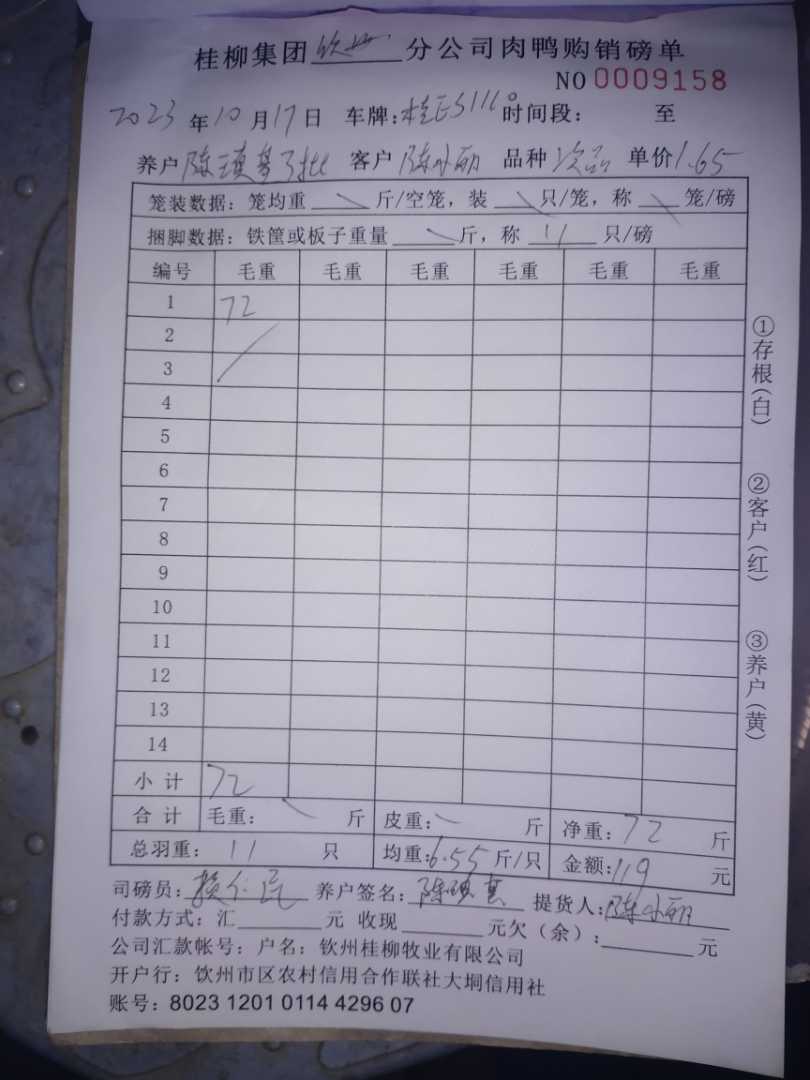 桂柳集团钦州分公司肉鸭购销磅单
NO 0009158
2023年10月17日 车牌:桂 时间段: 至
养户陈 客户陈小丽 品种次品 单价1.65
笼装数据:笼均重 斤/空笼,装 只/笼,称 笼/磅
捆脚数据:铁筐或板子重量 斤,称 11 只/磅
编号 毛重 毛重 毛重 毛重 毛重 毛重
1 72
2
3
4
5
6
7
8
9
10
11
12
13
14
小计 72
合计 毛重: 斤 皮重: 斤 净重:72 斤
总羽重: 11 只 均重:6.55斤/只 金额:119 元
司磅员: 养户签名:陈 提货人:陈小丽
付款方式:汇 元 收现 元欠(余): 元
公司汇款帐号:户名:钦州桂柳牧业有限公司
开户行:饮州市区农村信用合作联社大垌信用社
账号:8023 1201 0114 4296 07
①存根(白)
②客户(红)
③养户(黄)